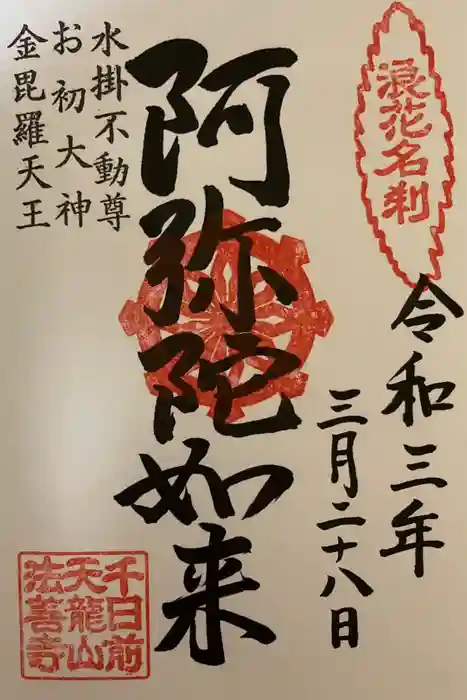 浪花名刹
令和三年
三月二十八日
阿弥陀如来
水掛不動尊
お初大神
金毘羅天王
千日前
天龍山
法善寺